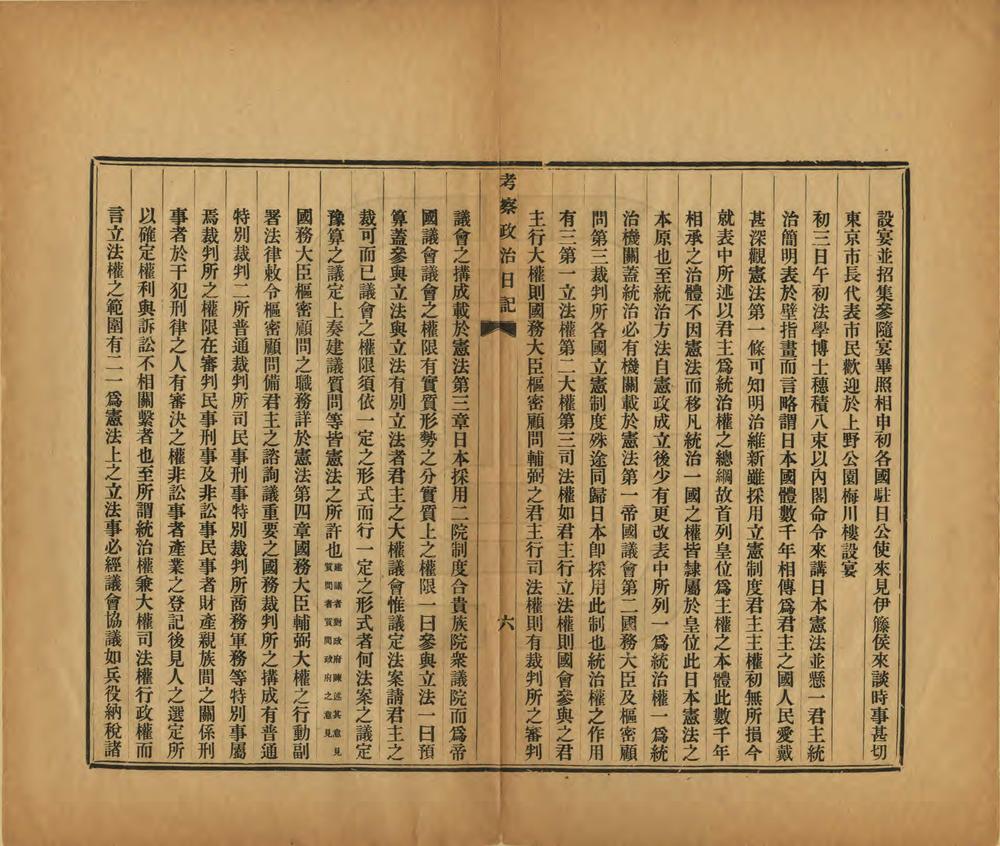 設宴並招集參隨宴畢照相申初各國駐日公使來見伊籐侯來談時事甚切
東京市長代表市民歡迎於上野公園梅川樓設宴
初三日午初法學博士穗積八束以內閣命令來講日本憲法並懸一君主統
治簡明表於壁指畫而言略謂日本國體數千年相傳爲君主之國人民愛戴
甚深觀憲法第一條可知明治維新雖採用立憲制度君主主權初無所損今
就表中所述以君主爲統治權之總綱故首列皇位爲主權之本體此數千年
相承之治體不因憲法而移凡統治一國之權皆隸屬於皇位此日本憲法之
本原也至統治方法自憲政成立後少有更改表中所列一爲統治權一爲統
治機關蓋統治必有機關載於憲法第一帝國議會第二國務大臣及樞密顧
問第三裁判所各國立憲制度殊途同歸日本卽採用此制也統治權之作用
有三第一立法權第二大權第三司法權如君主行立法權則國會參與之君
主行大權則國務大臣樞密顧問輔弼之君主行司法權則有裁判所之審判
考察政治日記
六
議會之搆成載於憲法第三章日本採用二院制度合貴族院衆議院而爲帝
國議會議會之權限有實質形勢之分實質上之權限一曰參與立法一曰預
算蓋參與立法與立法有別立法者君主之大權議會惟議定法案請君主之
裁可而已議會之權限須依一定之形式而行一定之形式者何法案之議定
豫算之議定上奏建議質問等皆憲法之所許也建議者對政府陳述其意見質問者質問政府之意見
國務大臣樞密顧問之職務詳於憲法第四章國務大臣輔弼大權之行動副
署法律敕令樞密顧問備君主之諮詢議重要之國務裁判所之搆成有普通
特別裁判二所普通裁判所司民事刑事特別裁判所商務軍務等特別事屬
焉裁判所之權限在審判民事刑事及非訟事民事者財產親族間之關係刑
事者於干犯刑律之人有審決之權非訟事者產業之登記後見人之選定所
以確定權利與訴訟不相關繫者也至所謂統治權兼大權司法權行政權而
言立法權之範圍有二一爲憲法上之立法事必經議會協議如兵役納稅諸